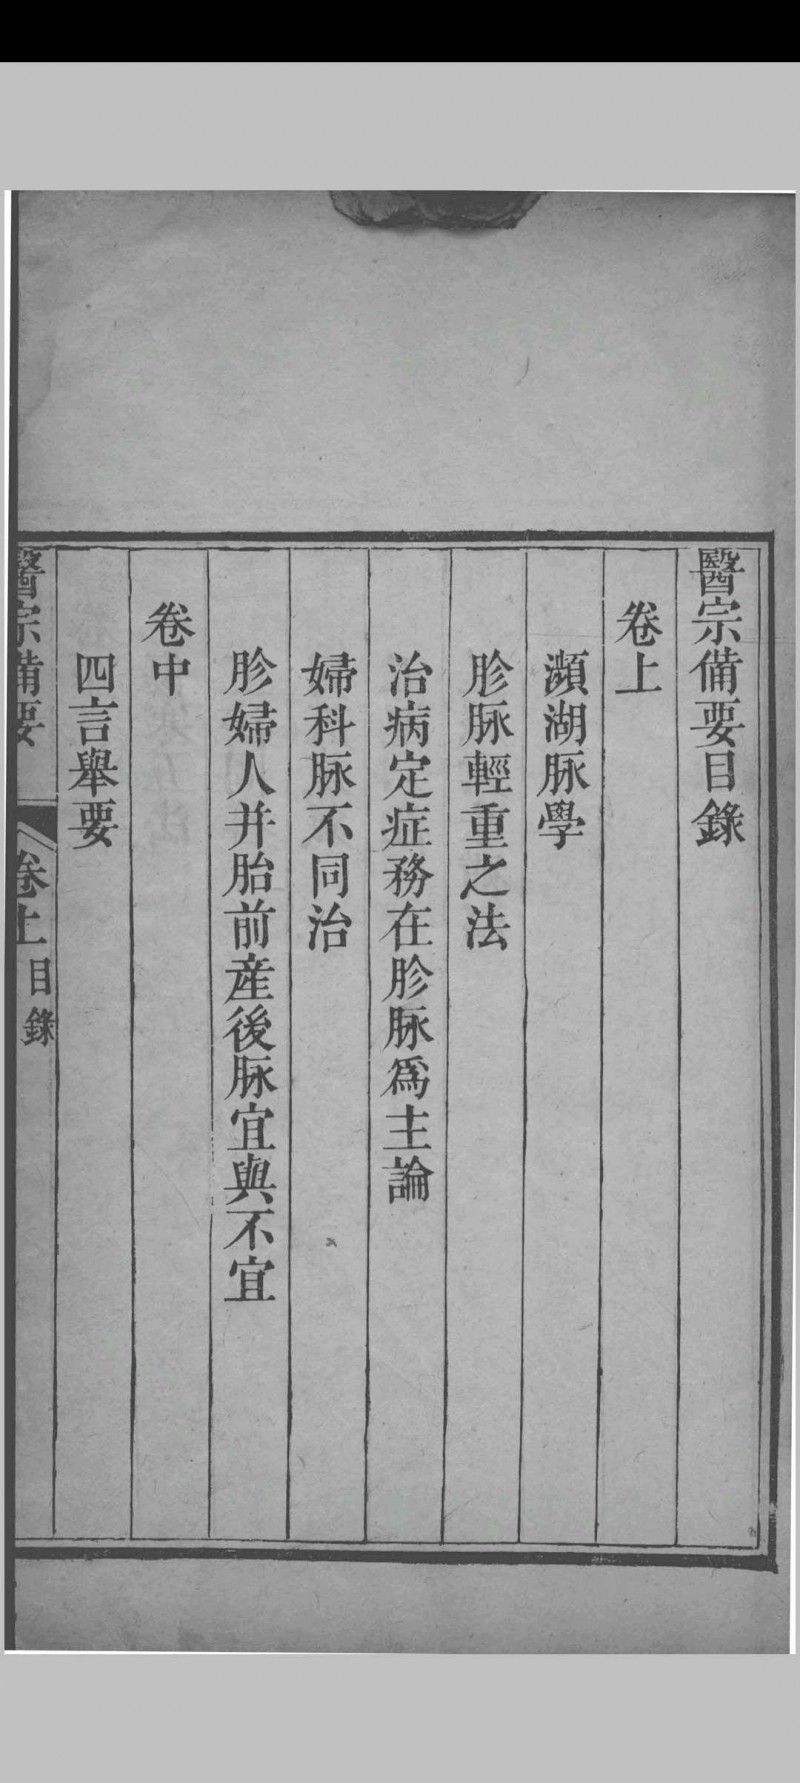 醫宗備要目錄
卷上
瀕湖脉學
胗脉輕重之法
治病定症務在胗脉爲主論
婦科脉不同治
胗婦人并胎前産後脉宜與不宜
卷中
四言舉要
醫宗備要
卷上
目錄